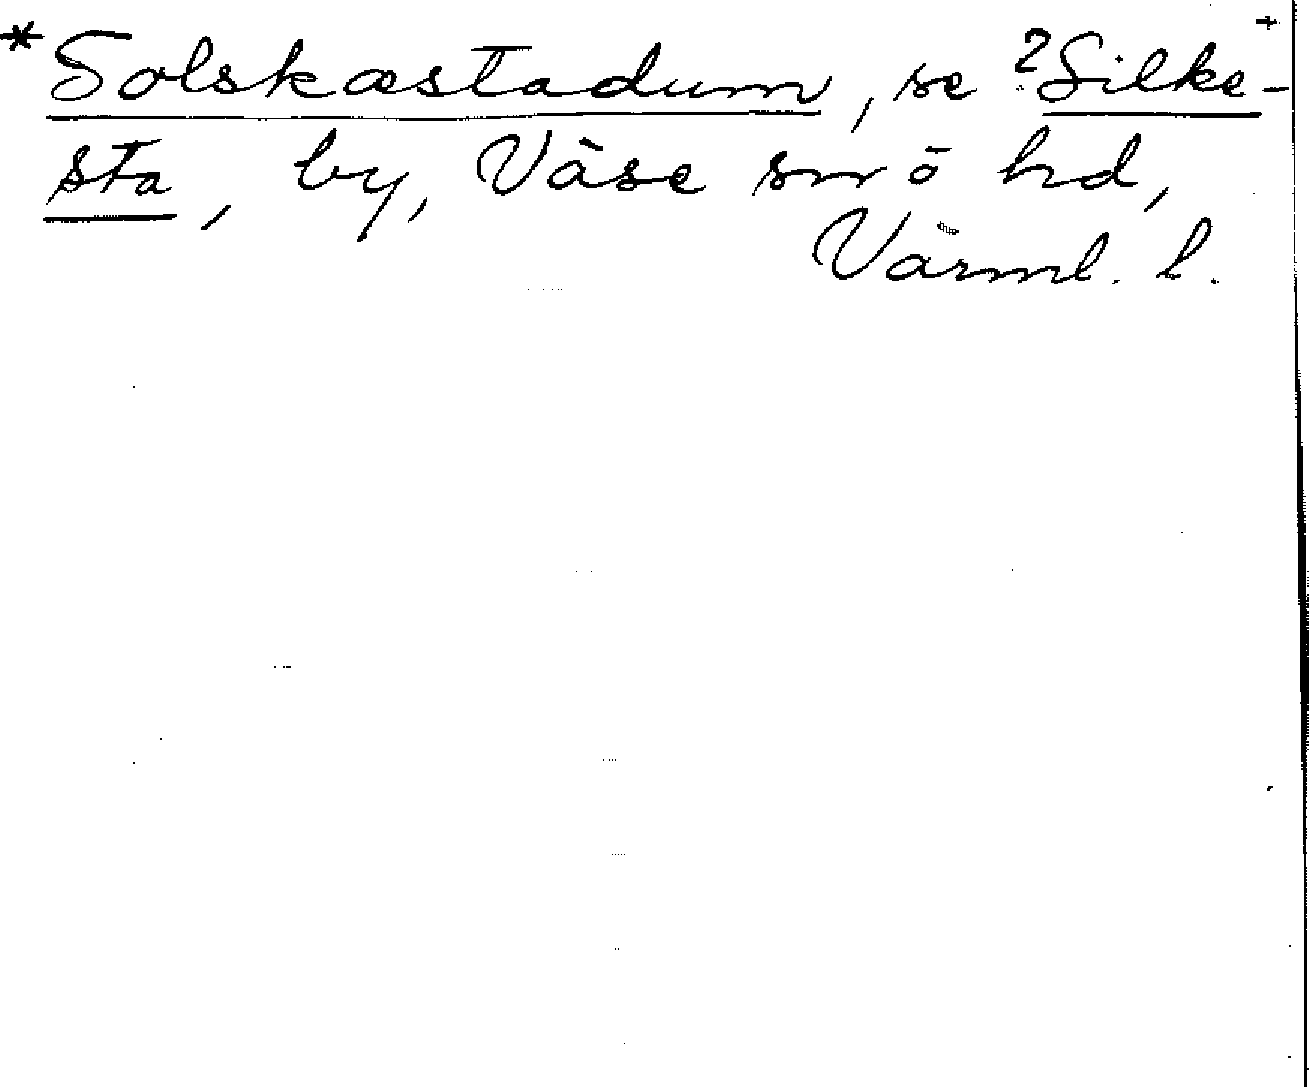 * Solskæstadum, se ?Silke-
sta, by, Väse sn o hd,
Värml. l.